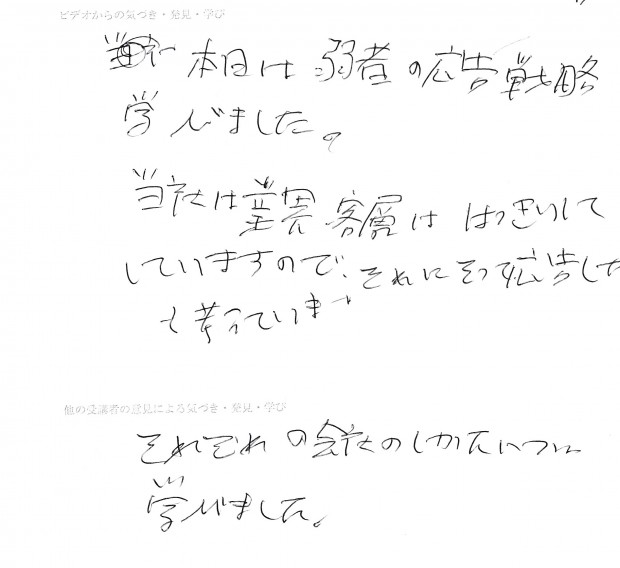 ビデオからの気づき・発見・学び
本日は弱者の広告戦略
学びました。
当社は業界客層は はっきりして
していますので、それにそって広告した
と考えています
他の受講者の意見による気づき・発見・学び
それぞれの会社のしかたについ
学びました。